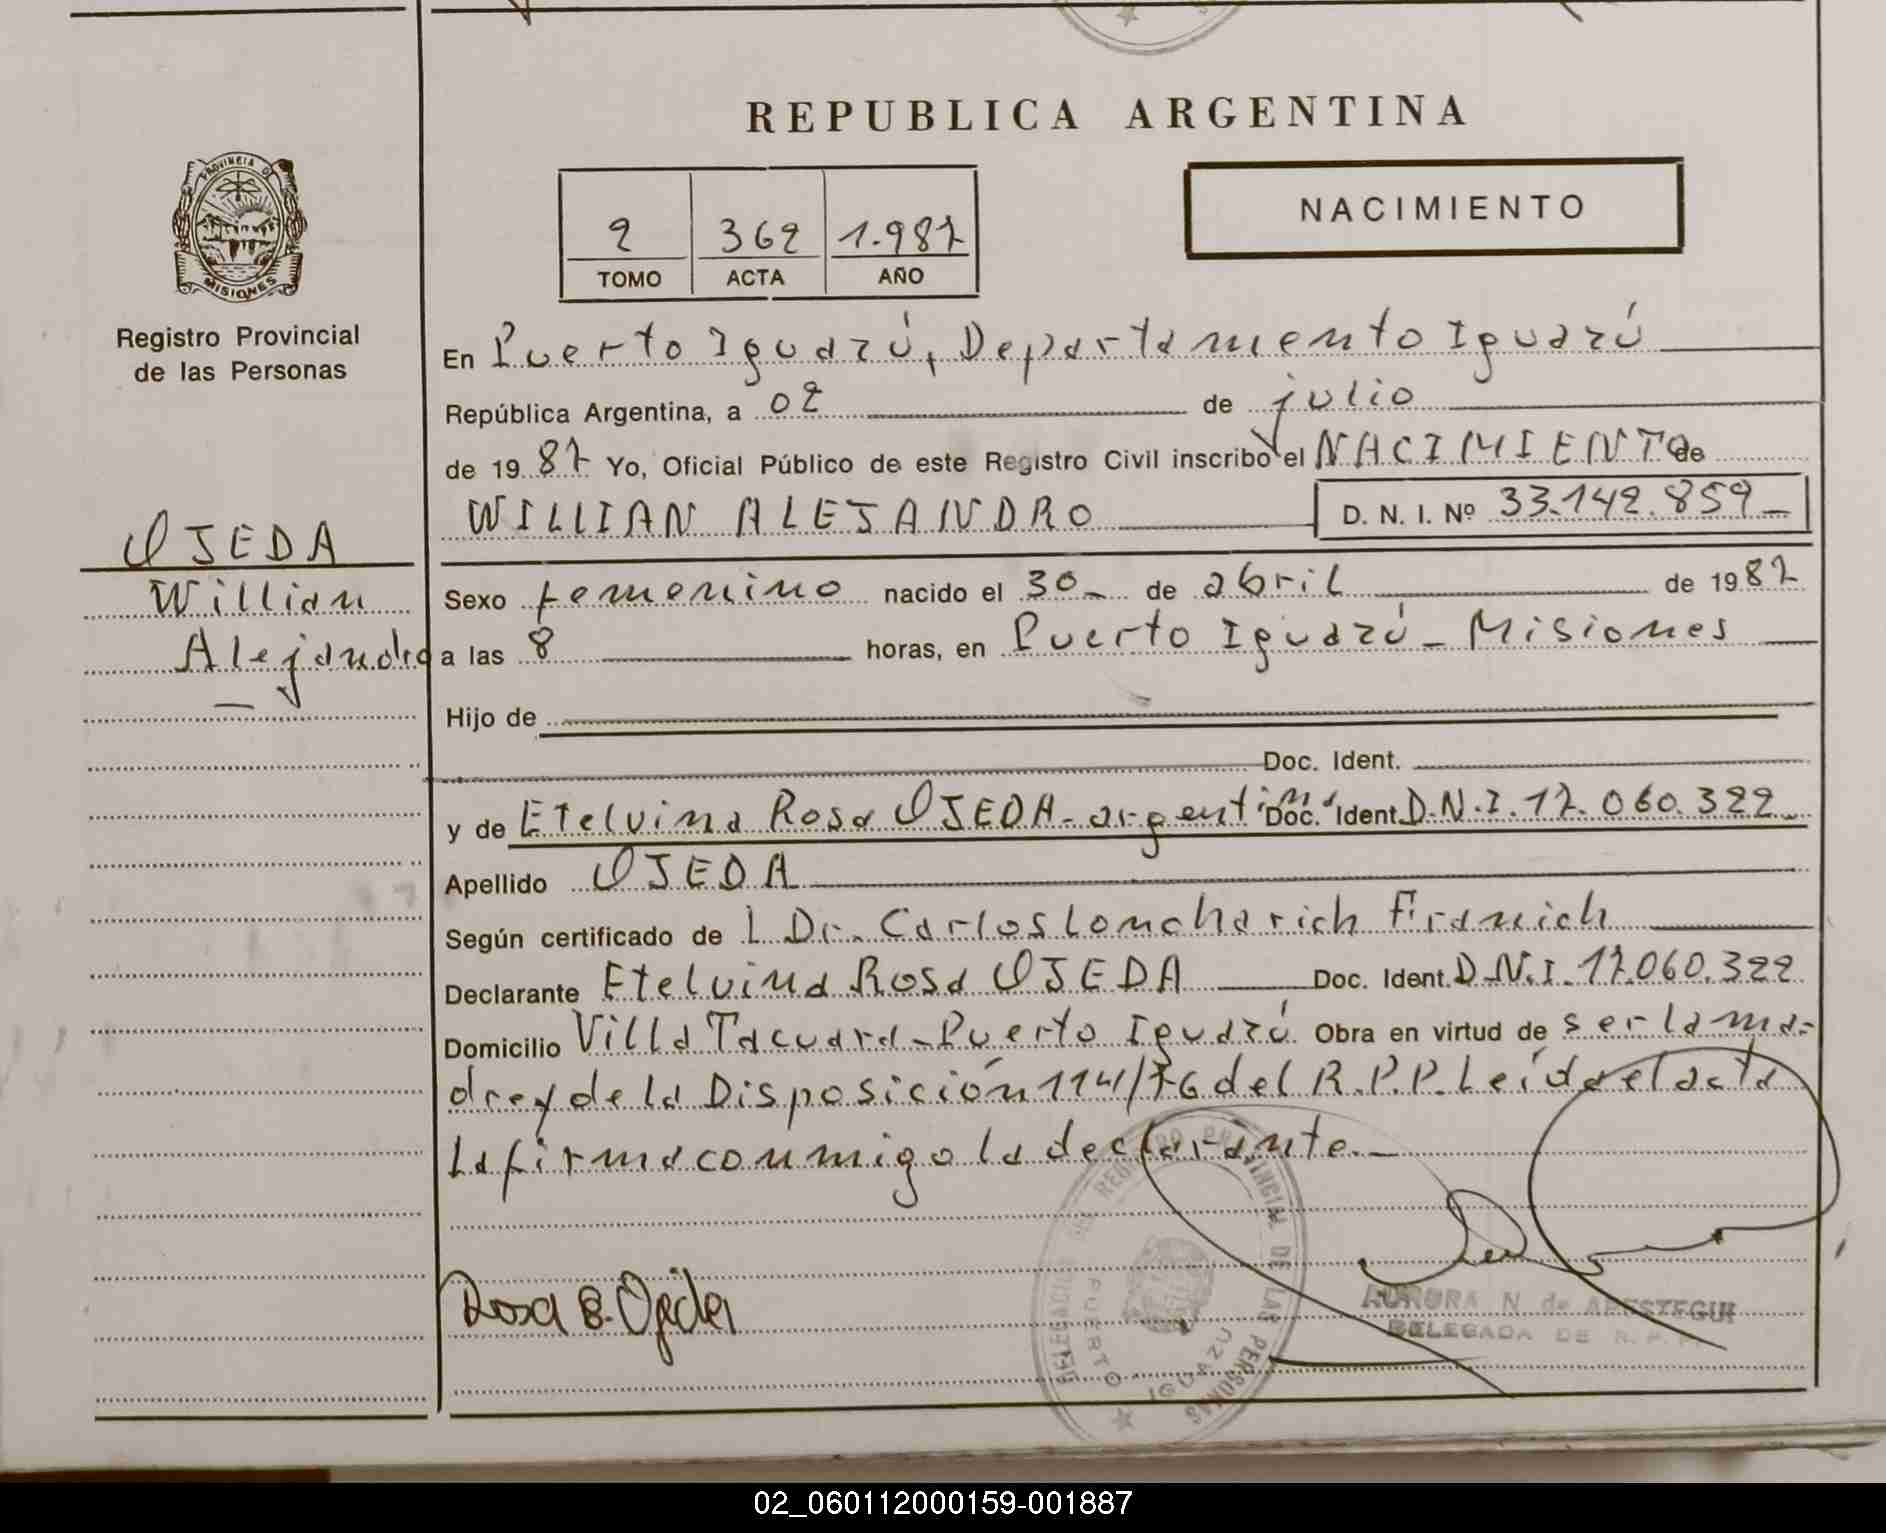 REPUBLICA ARGENTINA
PROVINCIA DE
MISIONES
Registro Provincial
de las Personas
2 362 1.987
TOMO ACTA AÑO
NACIMIENTO
En Puerto Iguazú, Departamento Iguazú
República Argentina, a 02 de julio
de 1987 Yo, Oficial Público de este Registro Civil inscribo el NACIMIENTO de
WILLIAN ALEJANDRO D. N. I. Nº 33.142.859_
OJEDA
Willian
Alejandro
Sexo femenino nacido el 30_ de abril de 1987
a las 8 horas, en Puerto Iguazú_Misiones
Hijo de
Doc. Ident.
y de Etelvina Rosa OJEDA-argentina Doc. Ident. D.N.I. 17.060.322_
Apellido OJEDA
Según certificado de l Dr. Carlos Loncharich Franich
Declarante Etelvina Rosa OJEDA Doc. Ident. D.N.I. 17.060.322
Domicilio Villa Tacuara-Puerto Iguazú Obra en virtud de ser la ma=
dre y de la Disposición 114/76 del R.P.P. Leída el acta
la firma conmigo la declarante._
Rosa E. Ojeda
DELEGACION DEL REGISTRO PROVINCIAL DE LAS PERSONAS
PUERTO IGUAZU
AURORA N. de APESTEGUI
DELEGADA DE R. P. P.
02_060112000159-001887